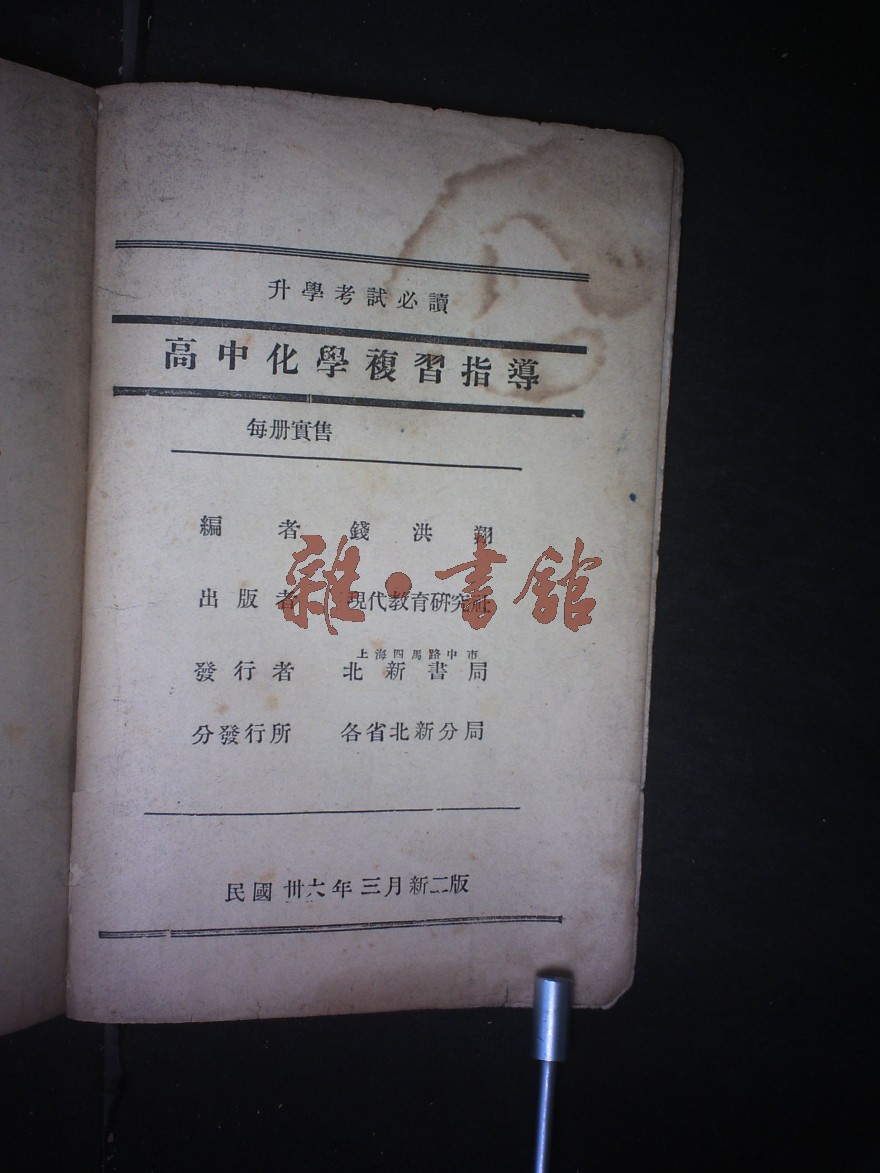 升學考試必讀
高中化學複習指導
每册實售
編者 錢洪翔
出版者 現代教育研究社
上海四馬路中市
發行者 北新書局
分發行所 各省北新分局
民國卅六年三月新二版
雜·書館